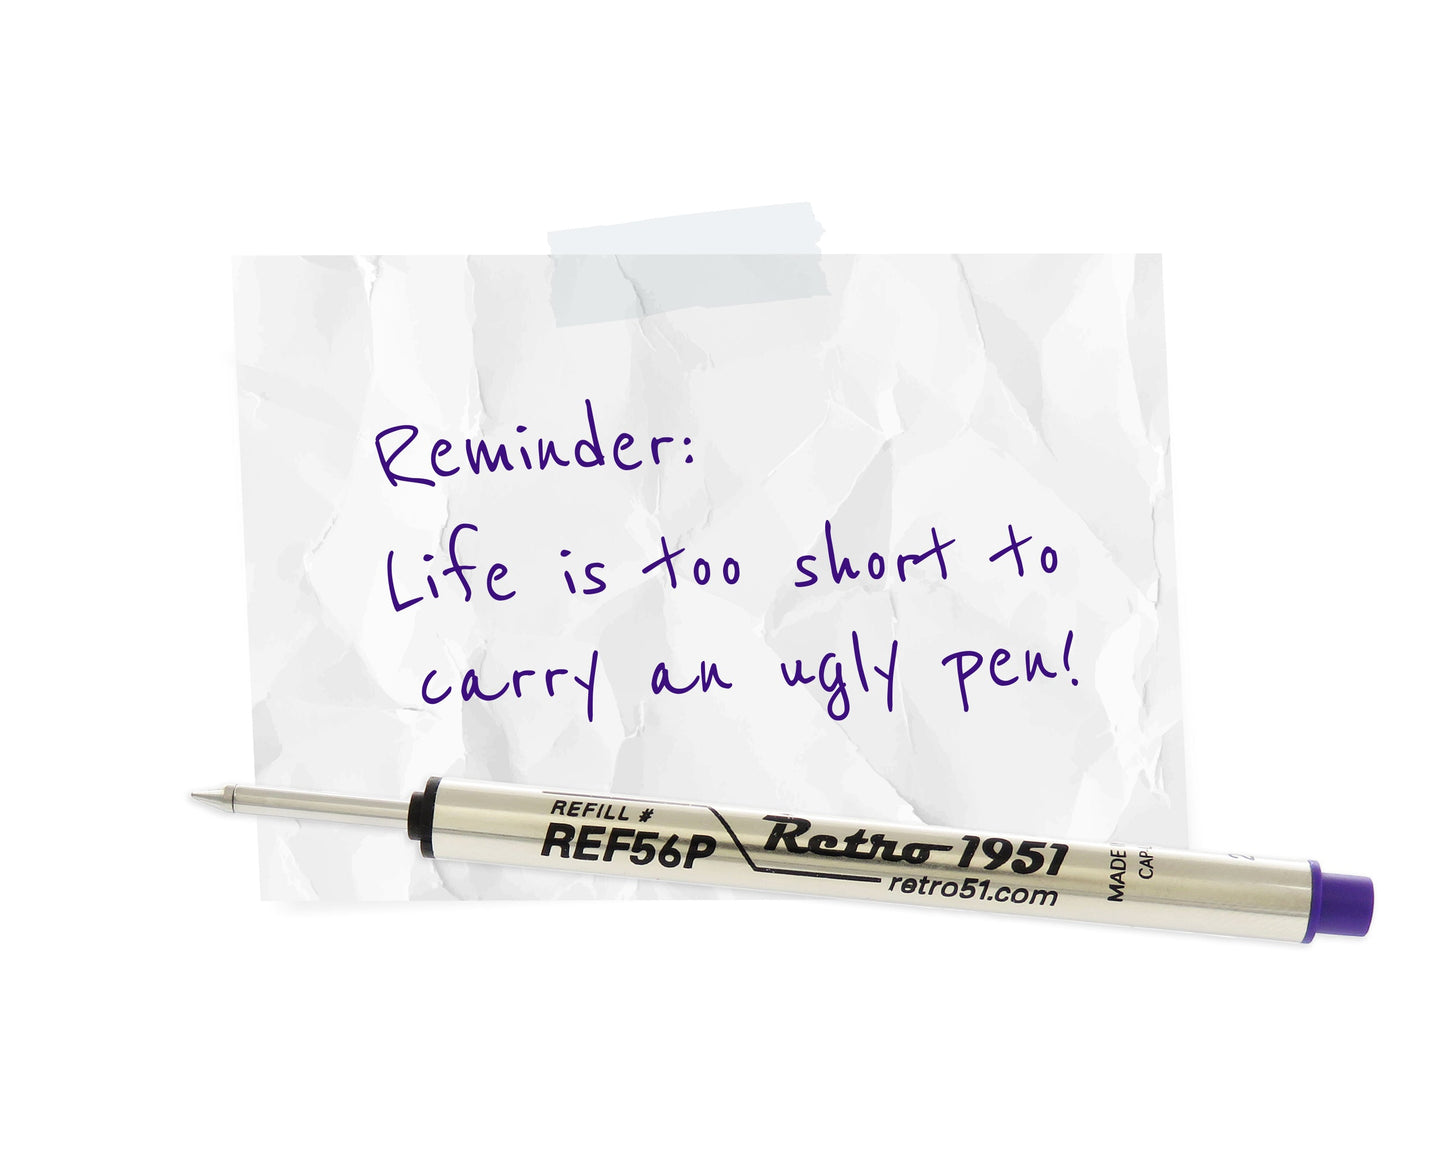 Reminder:
Life is too short to
carry an ugly pen!
REFILL #
REF56P
Retro 1951
retro51.com
MADE
CAP